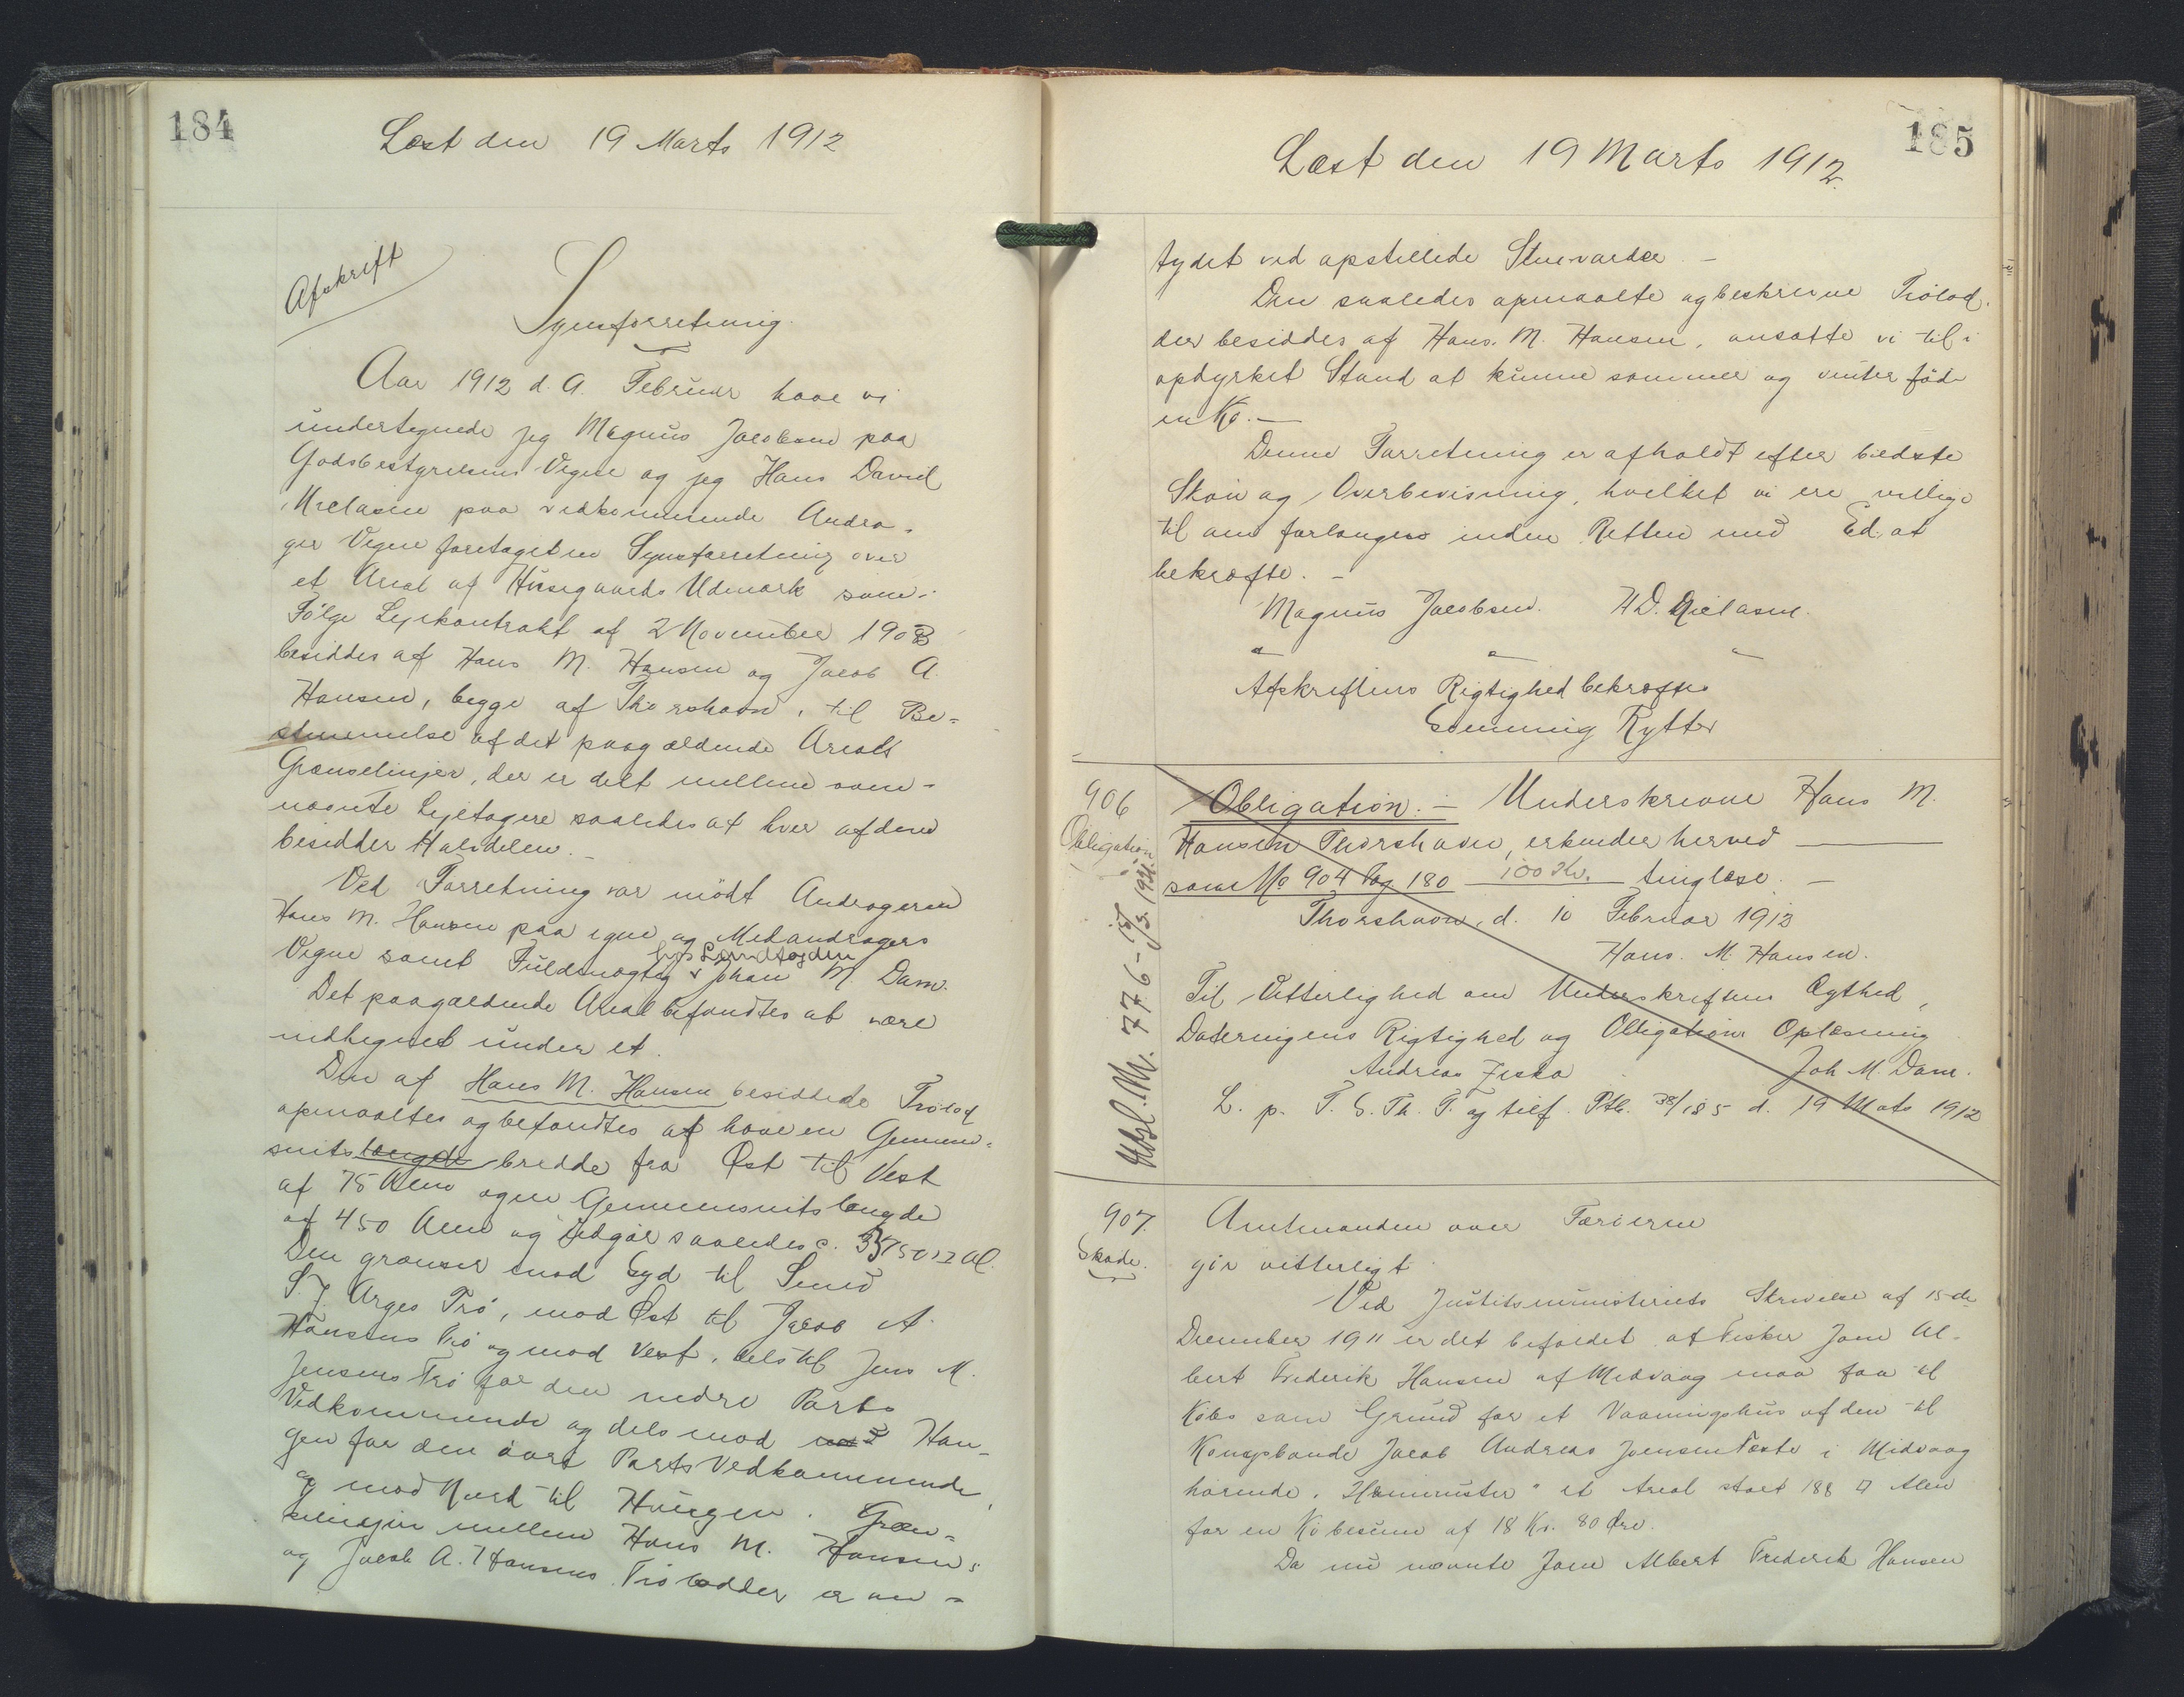 184
Læst den 19 Marts 1912
Afskrift
Synsforretning.
Aar 1912 d. 9. Februar have vi
undertegnede jeg Magnus Jacobsen paa
Godsbestyrelsens Vegne og jeg Hans David
Nielasen paa vedkommende Andra-
ger Vegne foretaget en Synsforretning over
et Areal af Husegaards Udmark som i
Følge Lejekontrakt af 2 November 1908
besiddes af Hans M. Hansen og Jacob A.
Hansen, begge af Thorshavn, til Be-
stemmelse af det paagældende Areals
Grænselinjer, der er delt mellem oven-
nævnte Lejetagere saaledes at hver af dem
besidder Halvdelen. -
Ved Forretning var mødt Andrageren
Hans M. Hansen paa egne og Medandragers
Vegne samt Fuldmægtig hos Landfogden Johan M. Dam.
Det paagældende Areal befandtes at være
indhegnet under et.
Den af Hans M. Hansen besiddede Trølod
opmaaltes og befandtes at have en Gennem-
snitslængde bredde fra Øst til Vest
af 75 Alen og en Gennemsnitslængde
af 450 Alen og udgør saaledes c. 33750 □ Al.
Den grænser mod Syd til Smed
S. J. Arges Trø, mod Øst til Jacob A.
Hansens Trø og mod Vest, dels til Jens M.
Jensens Trø for den nedre Parts
Vedkommende og dels mod Hau-
gen for den øvre Parts Vedkommende,
og mod Nord til Haugen. Græn-
selinjen mellem Hans M. Hansens
og Jacob A. Hansens Trølodder er an-
185
Læst den 19 Marts 1912.
tydet ved opstillede Stenvarder. -
Den saaledes opmaalte og beskrevne Trølod,
der besiddes af Hans. M. Hansen, ansatte vi til i
opdyrket Stand at kunne sommer og vinter føde
en Ko. -
Denne Forretning er afholdt efter bedste
Skøn og Overbevisning, hvilket vi ere villige
til om forlanges inden Retten med Ed at
bekræfte. -
Magnus Jacobsen. H D. Nielasen.
Afskriftens Rigtighed bekræftes
Flemming Rytter
906
Obligation
Obligation. - Underskrevne Hans M.
Hansen Thorshavn, erkender herved
som No 904 Pag 180 100 Kr. tinglæse. -
Thorshavn, d. 10 Februar 1912
Hans. M. Hansen.
Til Vitterlighed om Underskriftens Ægthed,
Dateringens Rigtighed og Obligations Oplæsning
Andreas Ziska Joh M. Dam.
L. p. T. S. Th. T. og tilf. Ptb. 38/185 d. 19 Mats 1912
907.
Skøde.
Amtmanden over Færøerne
gør vitterligt
Ved Justitsministeriets Skrivelse af 15de
December 1911 er det bifaldet at Fisker Jom Al-
bert Frederik Hansen af Midvaag maa faa til
Købs som Grund for et Vaaningshus af den til
Kongsbonde Jacob Andreas Joensens Fæste i Midvaag
hørende et Areal stort 188 □ Alen
for en Købesum af 18 Kr. 80 Øre.
Da nu nævnte Jom Albert Frederik Hansen